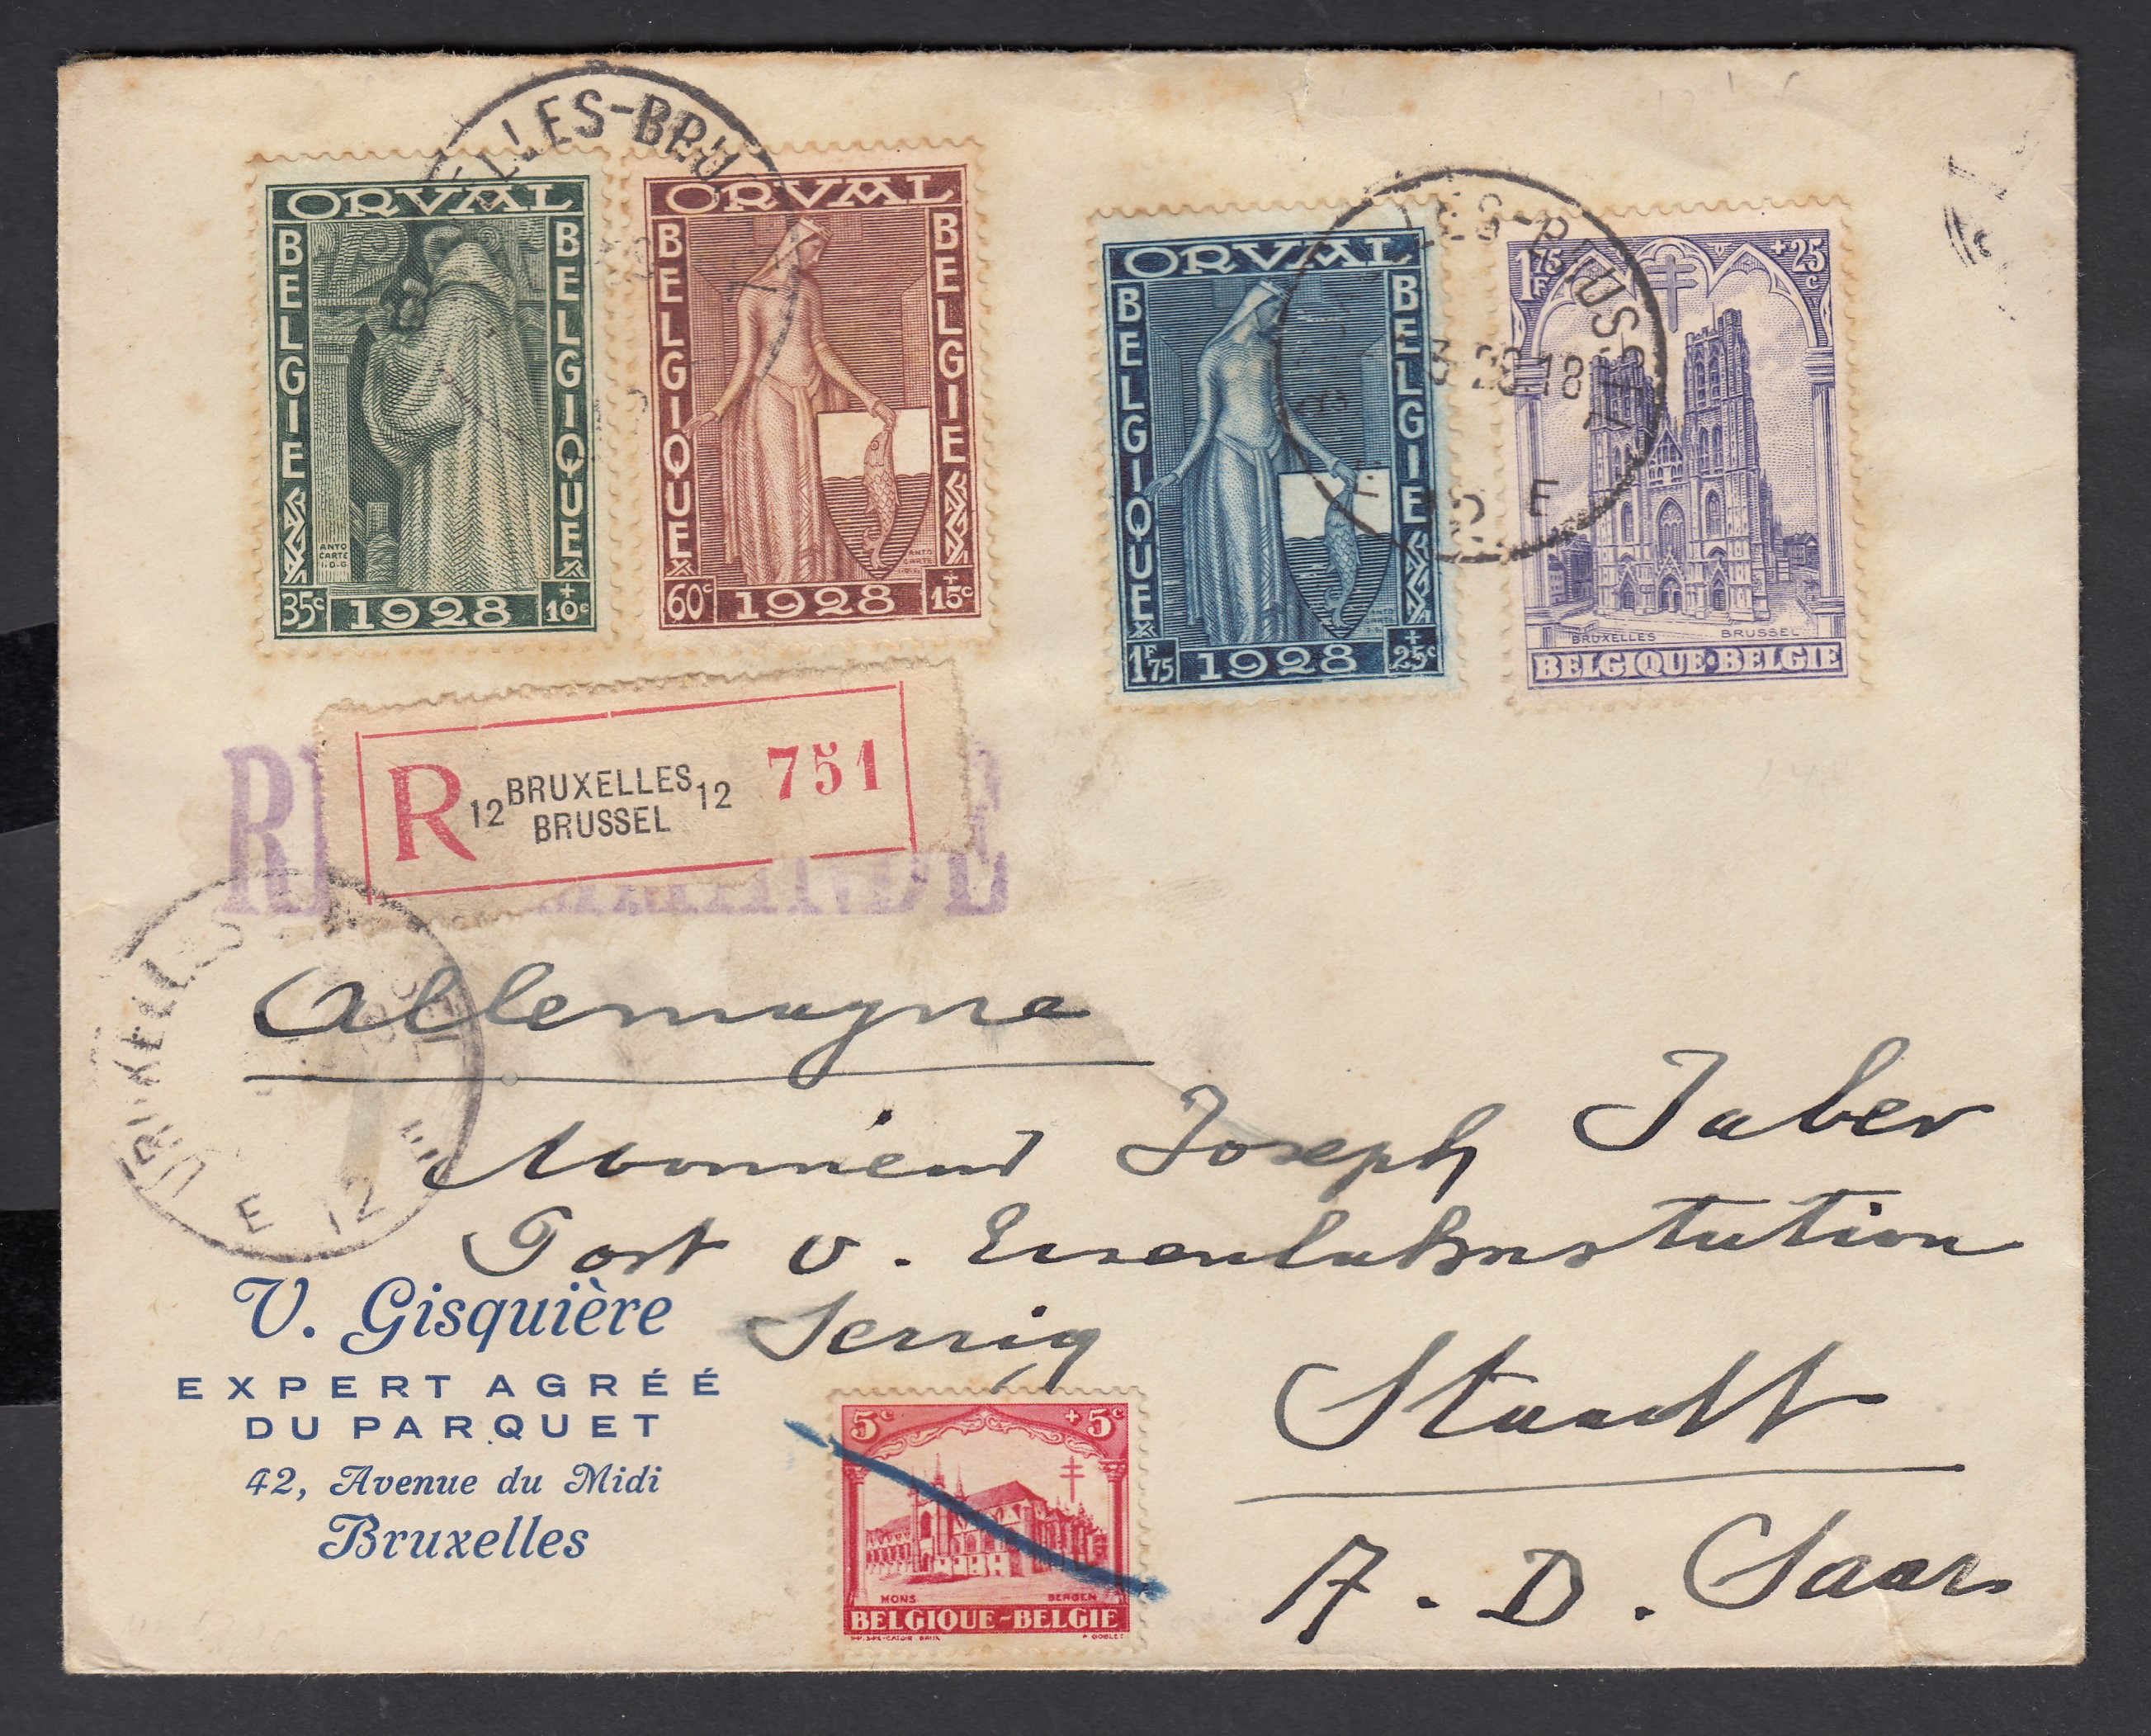 ELLES-BRU
ORVAL
BELGIE
BELGIQUE
ANTO
CARTE
35c 1928 +10c
ORVAL
BELGIQUE
BELGIE
ANTO
CARTE
60c 1928 +15c
ORVAL
BELGIQUE
BELGIE
1F75 1928 +25c
1F75 +25c
BRUXELLES BRUSSEL
BELGIQUE·BELGIE
LES-BRUSSE
3 28.18
E
R 12 BRUXELLES 12 751
BRUSSEL
E 12
Allemagne
Monsieur Joseph Faber
Post v. Eisenbahnstation
Serrig
Staadt
A. D. Saar
V. Gisquière
EXPERT AGRÉÉ
DU PARQUET
42, Avenue du Midi
Bruxelles
5c +5c
MONS BERGEN
BELGIQUE-BELGIE